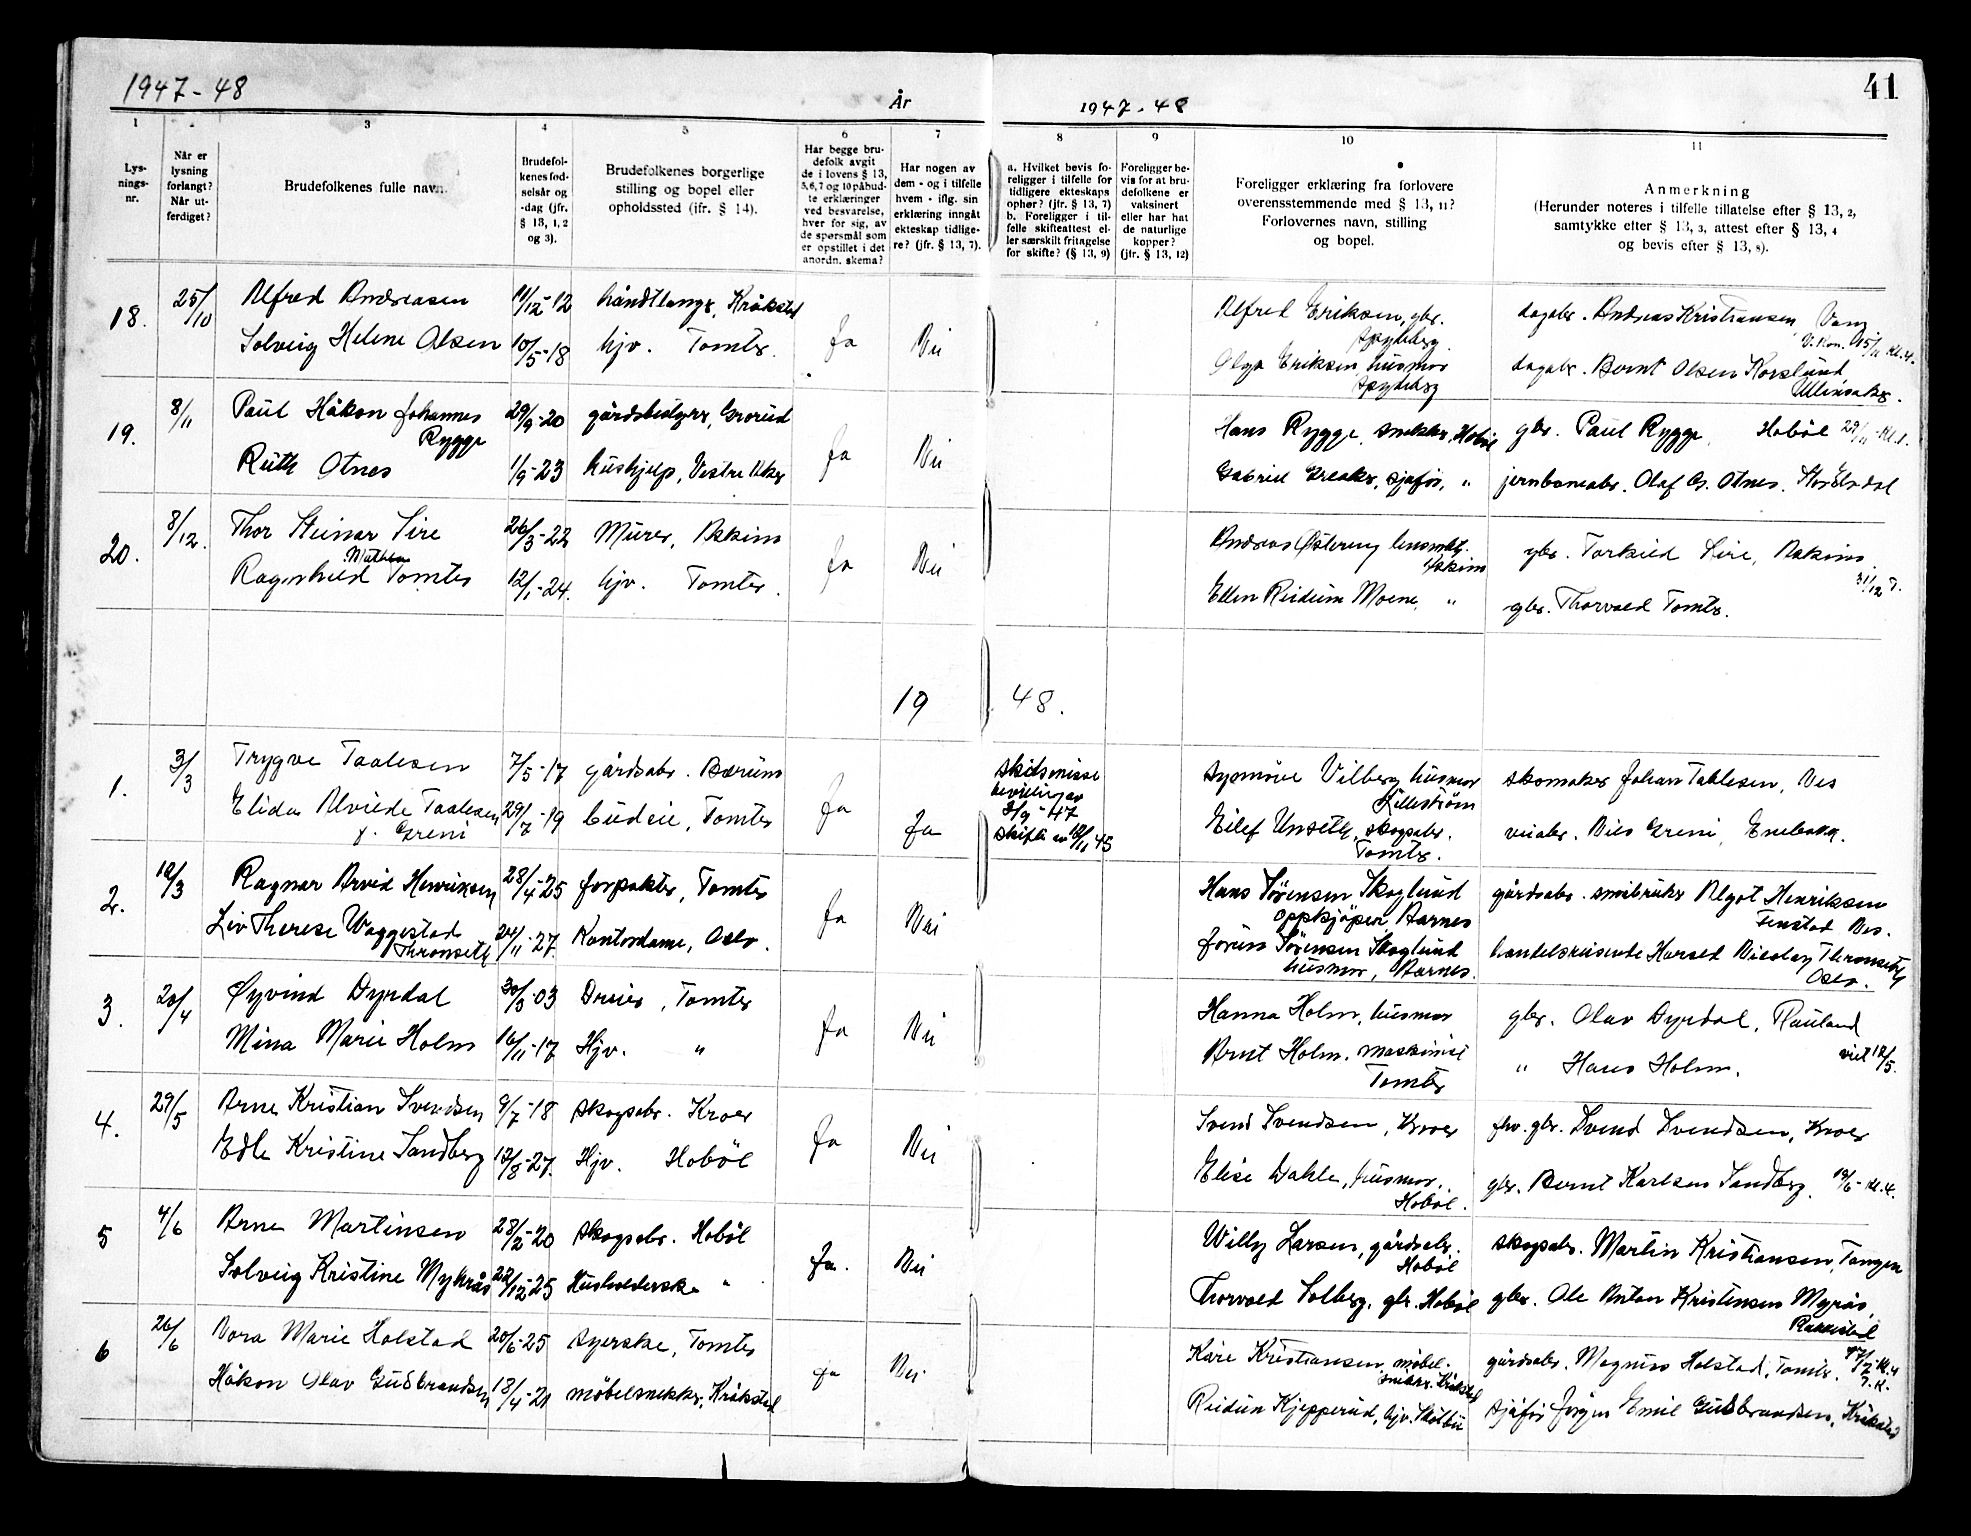 1947-48
År
1947-48
41
1
3
4
5
6
7
8
9
10
11
Lys-
nings-
nr.
Når er
lysning
forlangt?
Når ut-
ferdiget?
Brudefolkenes fulle navn.
Brudefol-
kenes fød-
selsår og
-dag (jfr.
§ 13, 1, 2
og 3).
Brudefolkenes borgerlige
stilling og bopel eller
opholdssted (ifr. § 14).
Har begge bru-
defolk avgit
de i lovens § 13,
5, 6, 7 og 10 påbud-
te erklæringer
ved besvarelse,
hver for sig, av
de spørsmål som
er opstillet i det
anordn. skema?
Har nogen av
dem - og i tilfelle
hvem - iflg. sin
erklæring inngått
ekteskap tidlige-
re? (jfr. § 13, 7).
a. Hvilket bevis fo-
religger i tilfelle for
tidligere ekteskaps
ophør? (jfr. § 13, 7)
b. Foreligger i til-
felle skifteattest el-
ler særskilt fritagelse
for skifte? (§ 13, 9)
Foreligger be-
vis for at bru-
defolkene er
vaksinert
eller har hat
de naturlige
kopper?
(jfr. § 13, 12)
Foreligger erklæring fra forlovere
overensstemmende med § 13, 11?
Forlovernes navn, stilling
og bopel.
Anmerkning
(Herunder noteres i tilfelle tillatelse efter § 13, 2,
samtykke efter § 13, 3, attest efter § 13, 4
og bevis efter § 13, 8).
18. 25/10 Alfred Andreasen 11/12-12 håndlanger, Kråkstad Ja Nei Alfred Eriksen, gbr. Spydeberg dagabr. Andreas Kristiansen Vang 15/11 kl. 4.
Solveig Helene Olsen 10/5-18 hjv. Tomter. Olga Eriksen husmor Spydeberg dagabr. Bernt Olsen Korslund Ullensaker.
19. 8/11 Paul Håkon Johannes Rygge 29/9-20 gårdsbestyrer, Grorud Ja Nei Hans Rygge, snekker, Hobøl gbr. Paul Rygge, Hobøl 29/11-kl. 1.
Ruth Otnes 1/9-23 hushjelp, Vestre Aker Gabriel Greaker, sjåfør, " jernbanearb. Olaf G. Otnes. Stor Elvdal
20. 8/12. Thor Steinar Sire 26/3-22 Murer, Askim Ja Nei Andreas Østereng Askim gbr. Torkild Sire, Askim. 31/12
Ragnhild Mathea Tomter 12/1-24. hjv. Tomter. Ellen Reidum Moene, " gbr. Thorvald Tomter.
19 48.
1. 3/3 Trygve Taalesen 7/5-17 gårdsabr. Bærum Ja Ja skilsmisse bevilling av 3/9-47 Synnøve Vilberg husmor Lillestrøm skomaker Johan Tahlesen, Nes
Elida Alvilde Taalesen f. Greni 29/7-19 budeie, Tomter skifte av 12/11 45 Eilef Unseth, skogsabr. Tomter. veiabr. Nils Greni, Enebakk.
2. 12/3 Ragnar Arvid Henriksen 28/4-25 forpakter, Tomter Ja Nei Hans Sørensen Skoglund oppkjøper Aarnes gårdsabr. småbruker Algot Henriksen Fenstad Nes.
Liv Therese Waggestad Thronseth 24/11-27. Kontordame, Oslo. Jorunn Sørensen Skoglund husmor, Aarnes. handelsreisende Harald Nicolay Thronseth Oslo.
3. 20/4 Øyvind Dyrdal 30/3-03 Dreier, Tomter Ja Nei Hanna Holm, husmor gbr. Olav Dyrdal, Rauland
Mina Marie Holm 16/11-17 Hjv. " Arnt Holm. maskinist Tomter " Hans Holm. viet 12/5.
4. 29/5 Arne Kristian Svendsen 9/7-18 skogsabr. Kroer Ja Nei Svend Svendsen, Kroer fhv. gbr. Svend Svendsen, Kroer
Edle Kristine Sandberg 12/8-27. Hjv. Hobøl Elise Dahle, husmor. Hobøl. gbr. Bernt Karlsen Sandberg. 19/6-kl. 4.
5 4/6 Arne Martinsen 28/2-20 skogsabr. Hobøl Ja. Nei Willy Larsen, gårdsabr. Hobøl skogsabr. Martin Kristiansen, Tangen
Solveig Kristine Mykrås 22/12-25 Husholderske " Thorvald Solberg, gbr. Hobøl gbr. Ole Anton Kristensen Myrås, Rakkestad
6 26/6 Nora Marie Holstad 20/6-25 syerske, Tomter Ja Nei Kåre Kristiansen, møbel- snekker, Kråkstad gårdsabr. Magnus Holstad, Tomter. 17/7-kl. 4 T.K.
Håkon Olav Gudbrandsen 18/4-21 møbelsnekker, Kråkstad Reidun Kjepperud, hjv. Skotbu sjåfør Jørgen Emil Gudbrandsen, Kråkstad